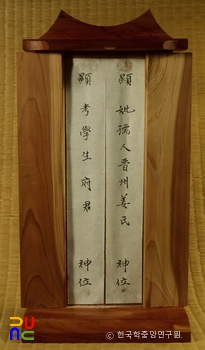 顯妣孺人晋州姜氏 神位
顯考學生府君 神位
ⓒ 한국학중앙연구원